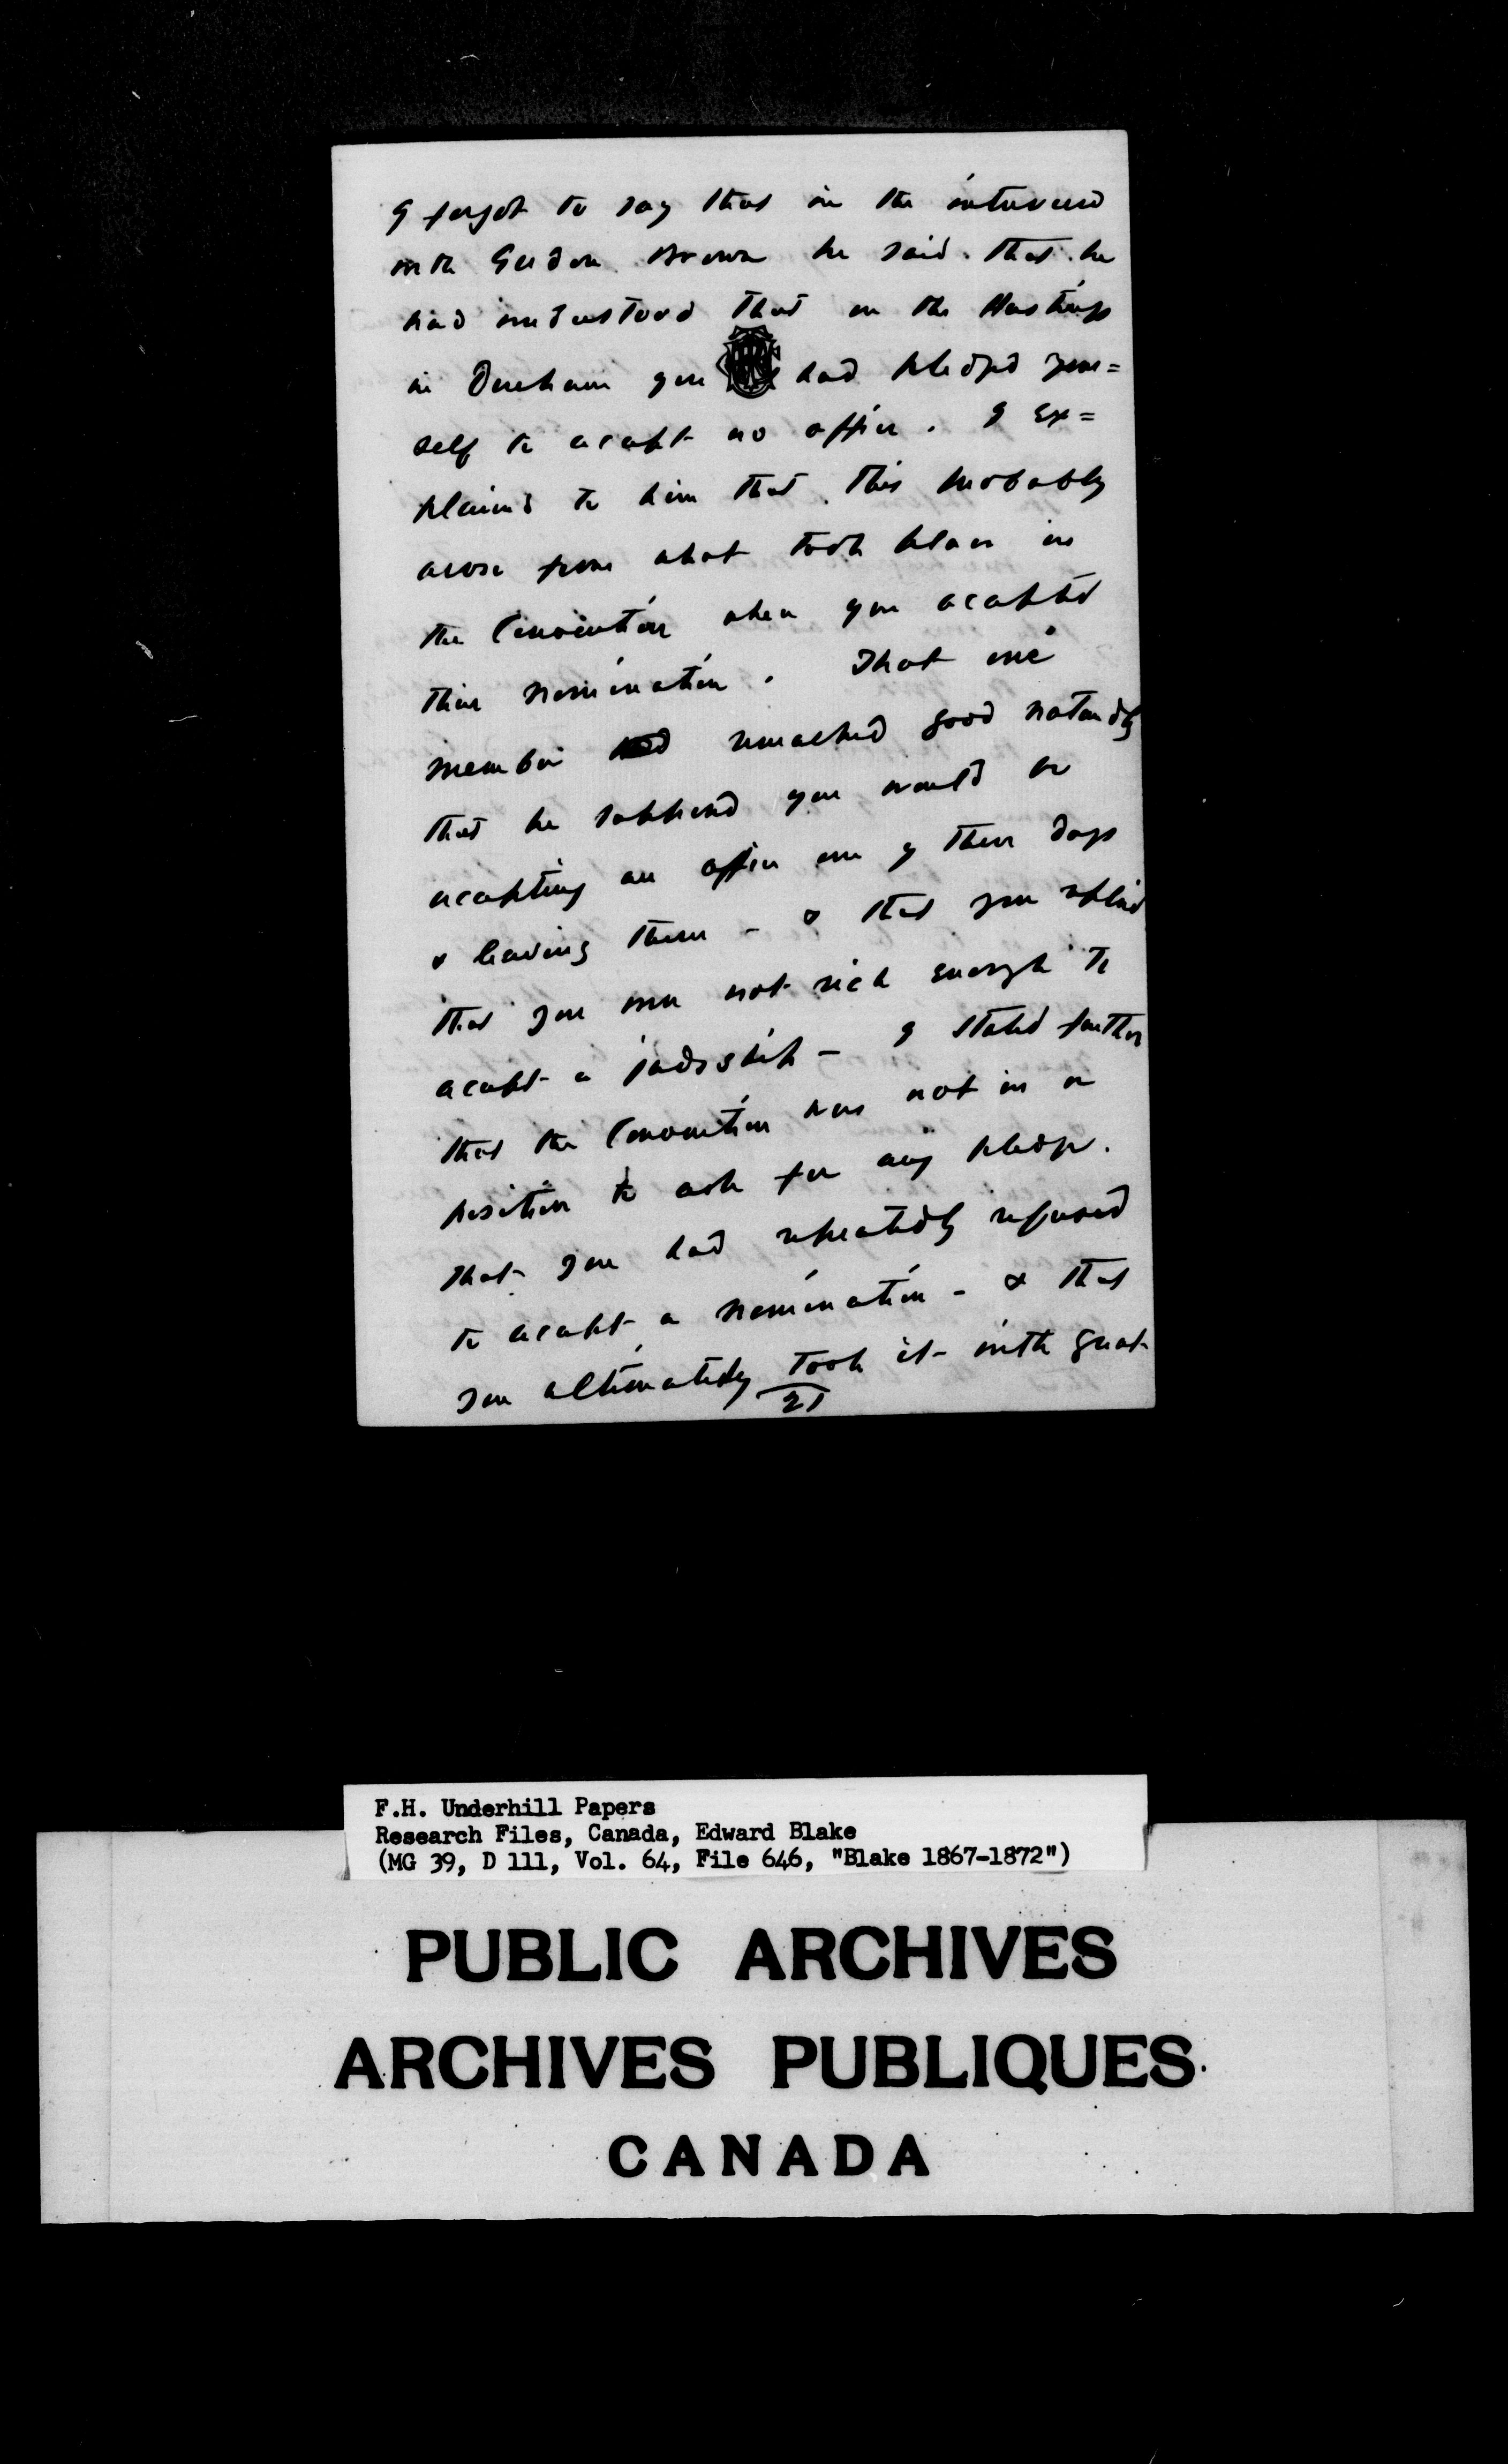 I forgot to say that in the interview
with Gordon Brown he said that he
had understood that on the Hustings
in Durham you had pledged your=
self to accept no office. I ex=
plained to him that this probably
arose from what took place in
the Convention when you accepted
their nomination. That one
member remarked good naturedly
that he supposed you would be
accepting an office one of these days
& leaving them - & that you replied
that you were not rich enough to
accept a judgship - I stated further
that the Convention was not in a
position to ask for any pledge.
That you had repeatedly refused
to accept a nomination - & that
you ultimately took it with great
21
F.H. Underhill Papers
Research Files, Canada, Edward Blake
(MG 39, D 111, Vol. 64, File 646, "Blake 1867-1872")
PUBLIC ARCHIVES
ARCHIVES PUBLIQUES
CANADA